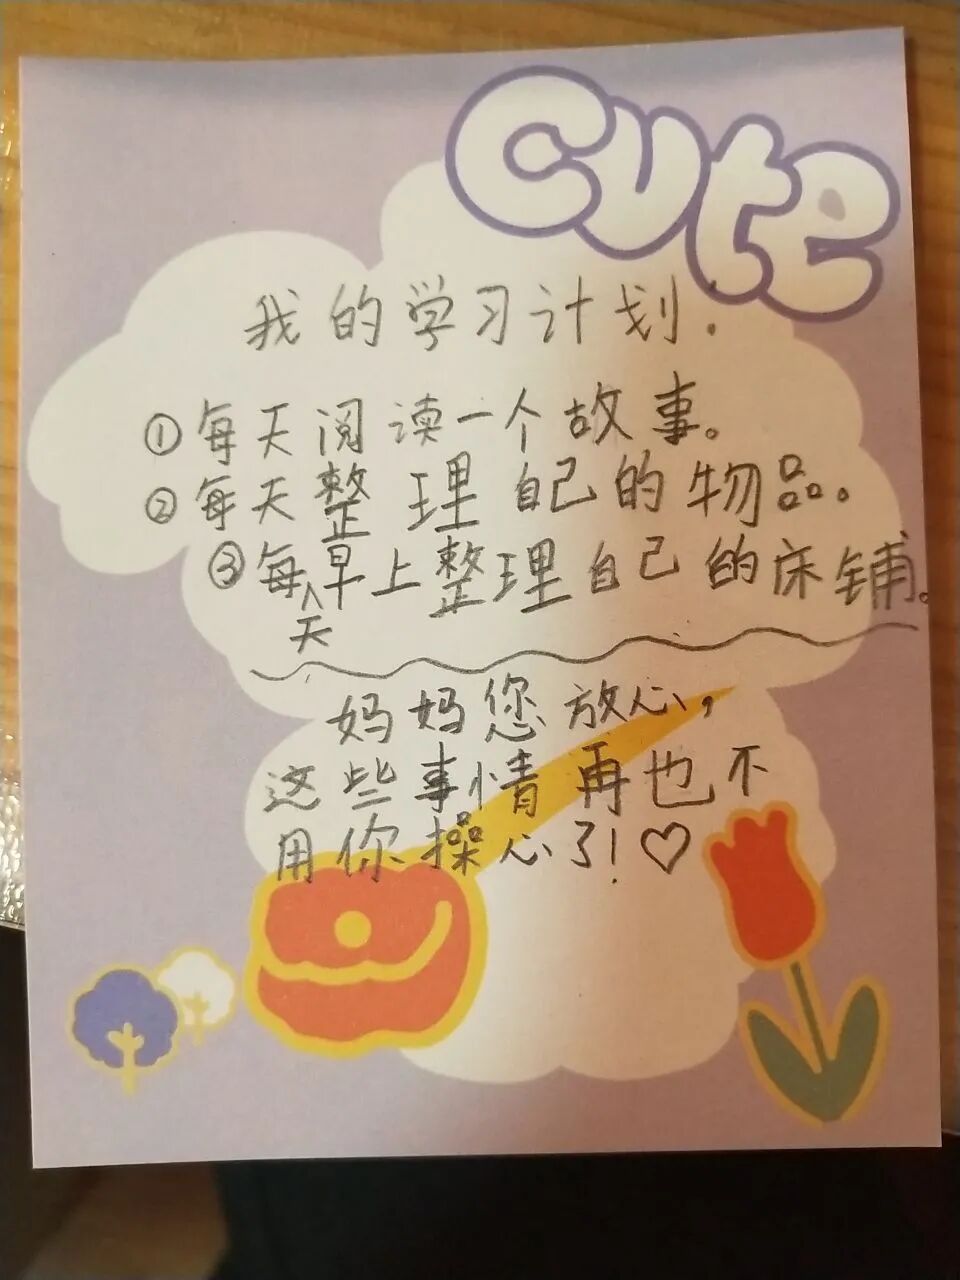 cute
我的学习计划.
①每天阅读一个故事。
②每天整理自己的物品。
③每天早上整理自己的床铺。
妈妈您放心，
这些事情再也不
用你操心了！♡